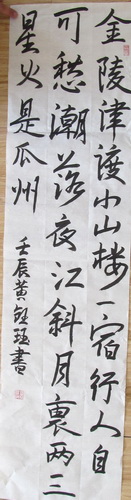 金陵津渡小山楼一宿行人自
可愁潮落夜江斜月裏两三
星火是瓜州
壬辰黄钰珏書